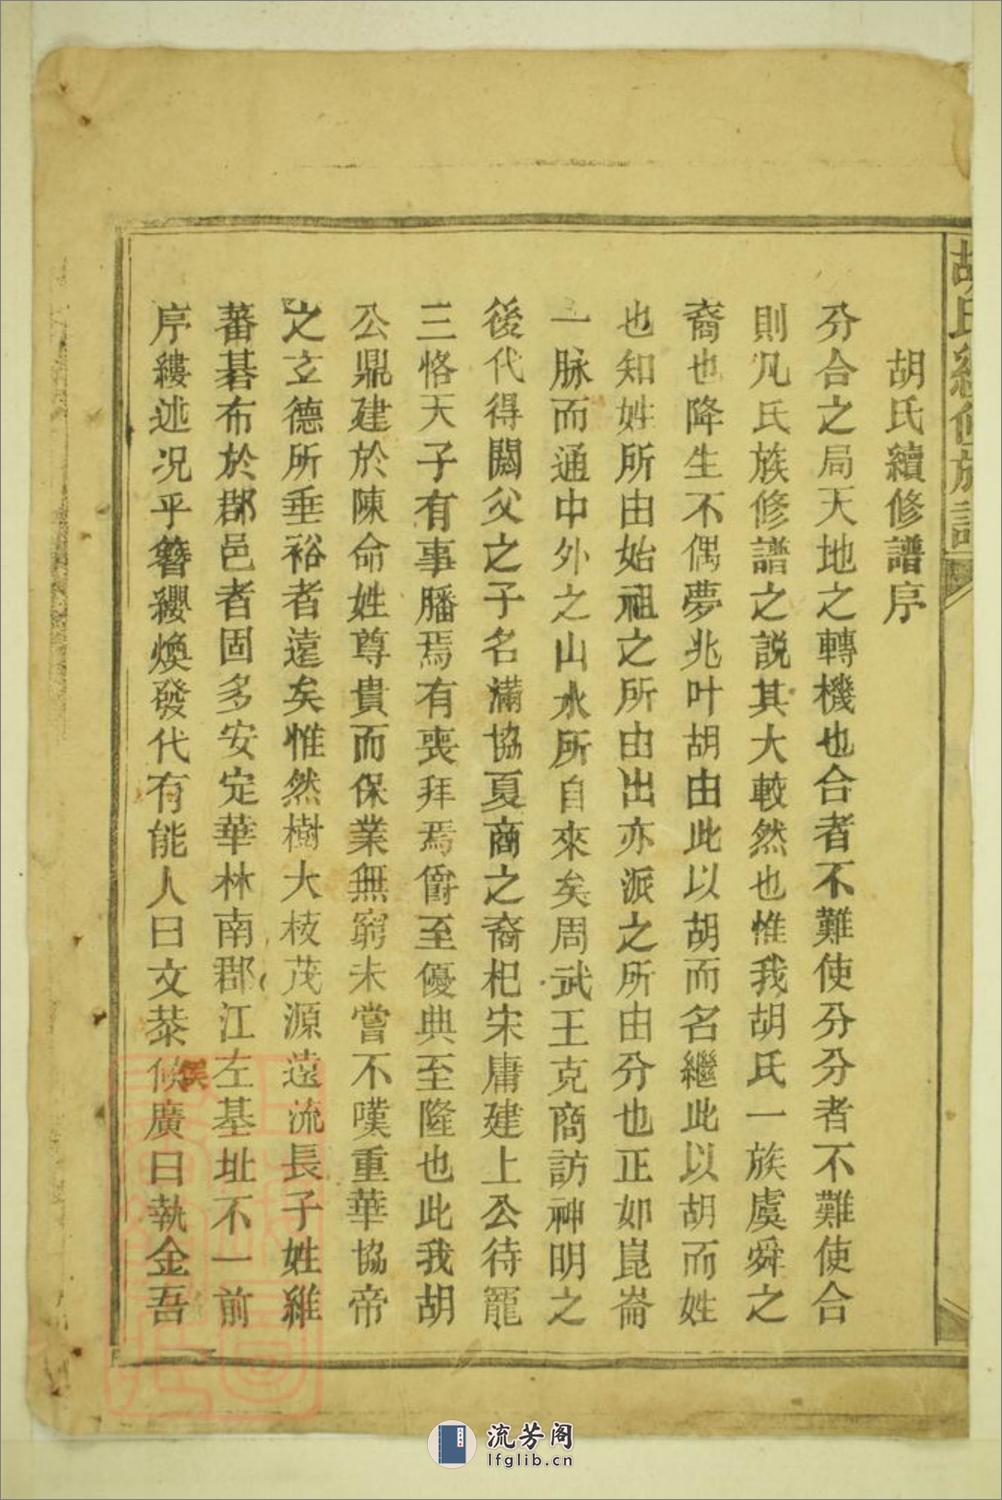 胡氏續修族譜
胡氏續修譜序
分合之局天地之轉機也合者不難使分分者不難使合
則凡氏族修譜之説其大較然也惟我胡氏一族虞舜之
裔也降生不偶夢兆叶胡由此以胡而名繼此以胡而姓
也知姓所由始祖之所由出亦派之所由分也正如崑崙
一脉而通中外之山水所自來矣周武王克商訪神明之
後代得閼父之子名滿協夏商之裔杞宋庸建上公待寵
三恪天子有事膰焉有喪拜焉爵至優典至隆也此我胡
公鼎建於陳命姓尊貴而保業無窮未嘗不嘆重華協帝
之立德所垂裕者遠矣惟然樹大枝茂源遠流長子姓維
蕃碁布於郡邑者固多安定華林南郡江左基址不一前
序縷述况乎簪纓煥發代有能人曰文恭候廣曰執金吾
侯
流芳阁
lfglib.cn